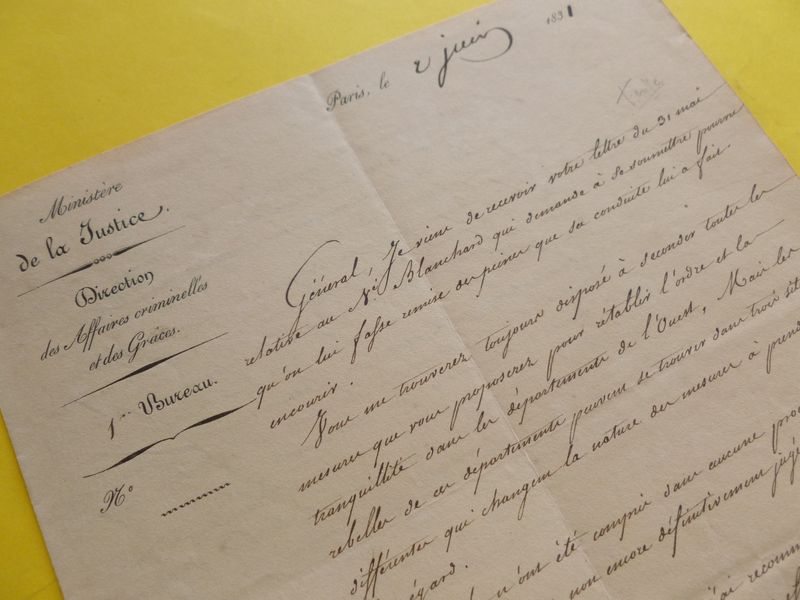 Paris, le 2 juin 1831
Ministère
de la Justice.
Direction
des Affaires criminelles
et des Grâces.
1er Bureau.
N°
Général, Je viens de recevoir votre lettre du 31 mai
relative au Né Blanchard qui demande à se soumettre pourvu
qu'on lui fasse remise des peines que sa conduite lui a fait
encourir.
Vous me trouverez toujours disposé à seconder toutes les
mesures que vous proposerez pour rétablir l'ordre et la
tranquillité dans les départements de l'Ouest. Mais les
rebelles de ces départements peuvent se trouver dans trois
différentes qui changent la nature des mesures à
égard.
n'ont été compris dans aucune
non encore définitivement
j'ai